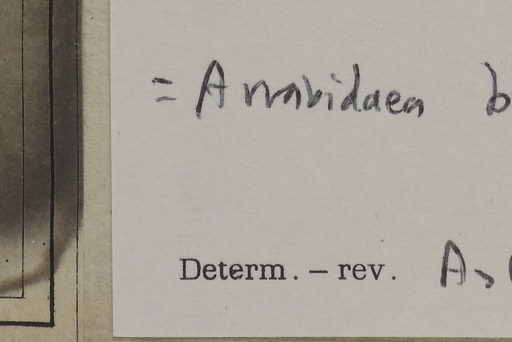 = Arrabidaea b
Determ. – rev. A.